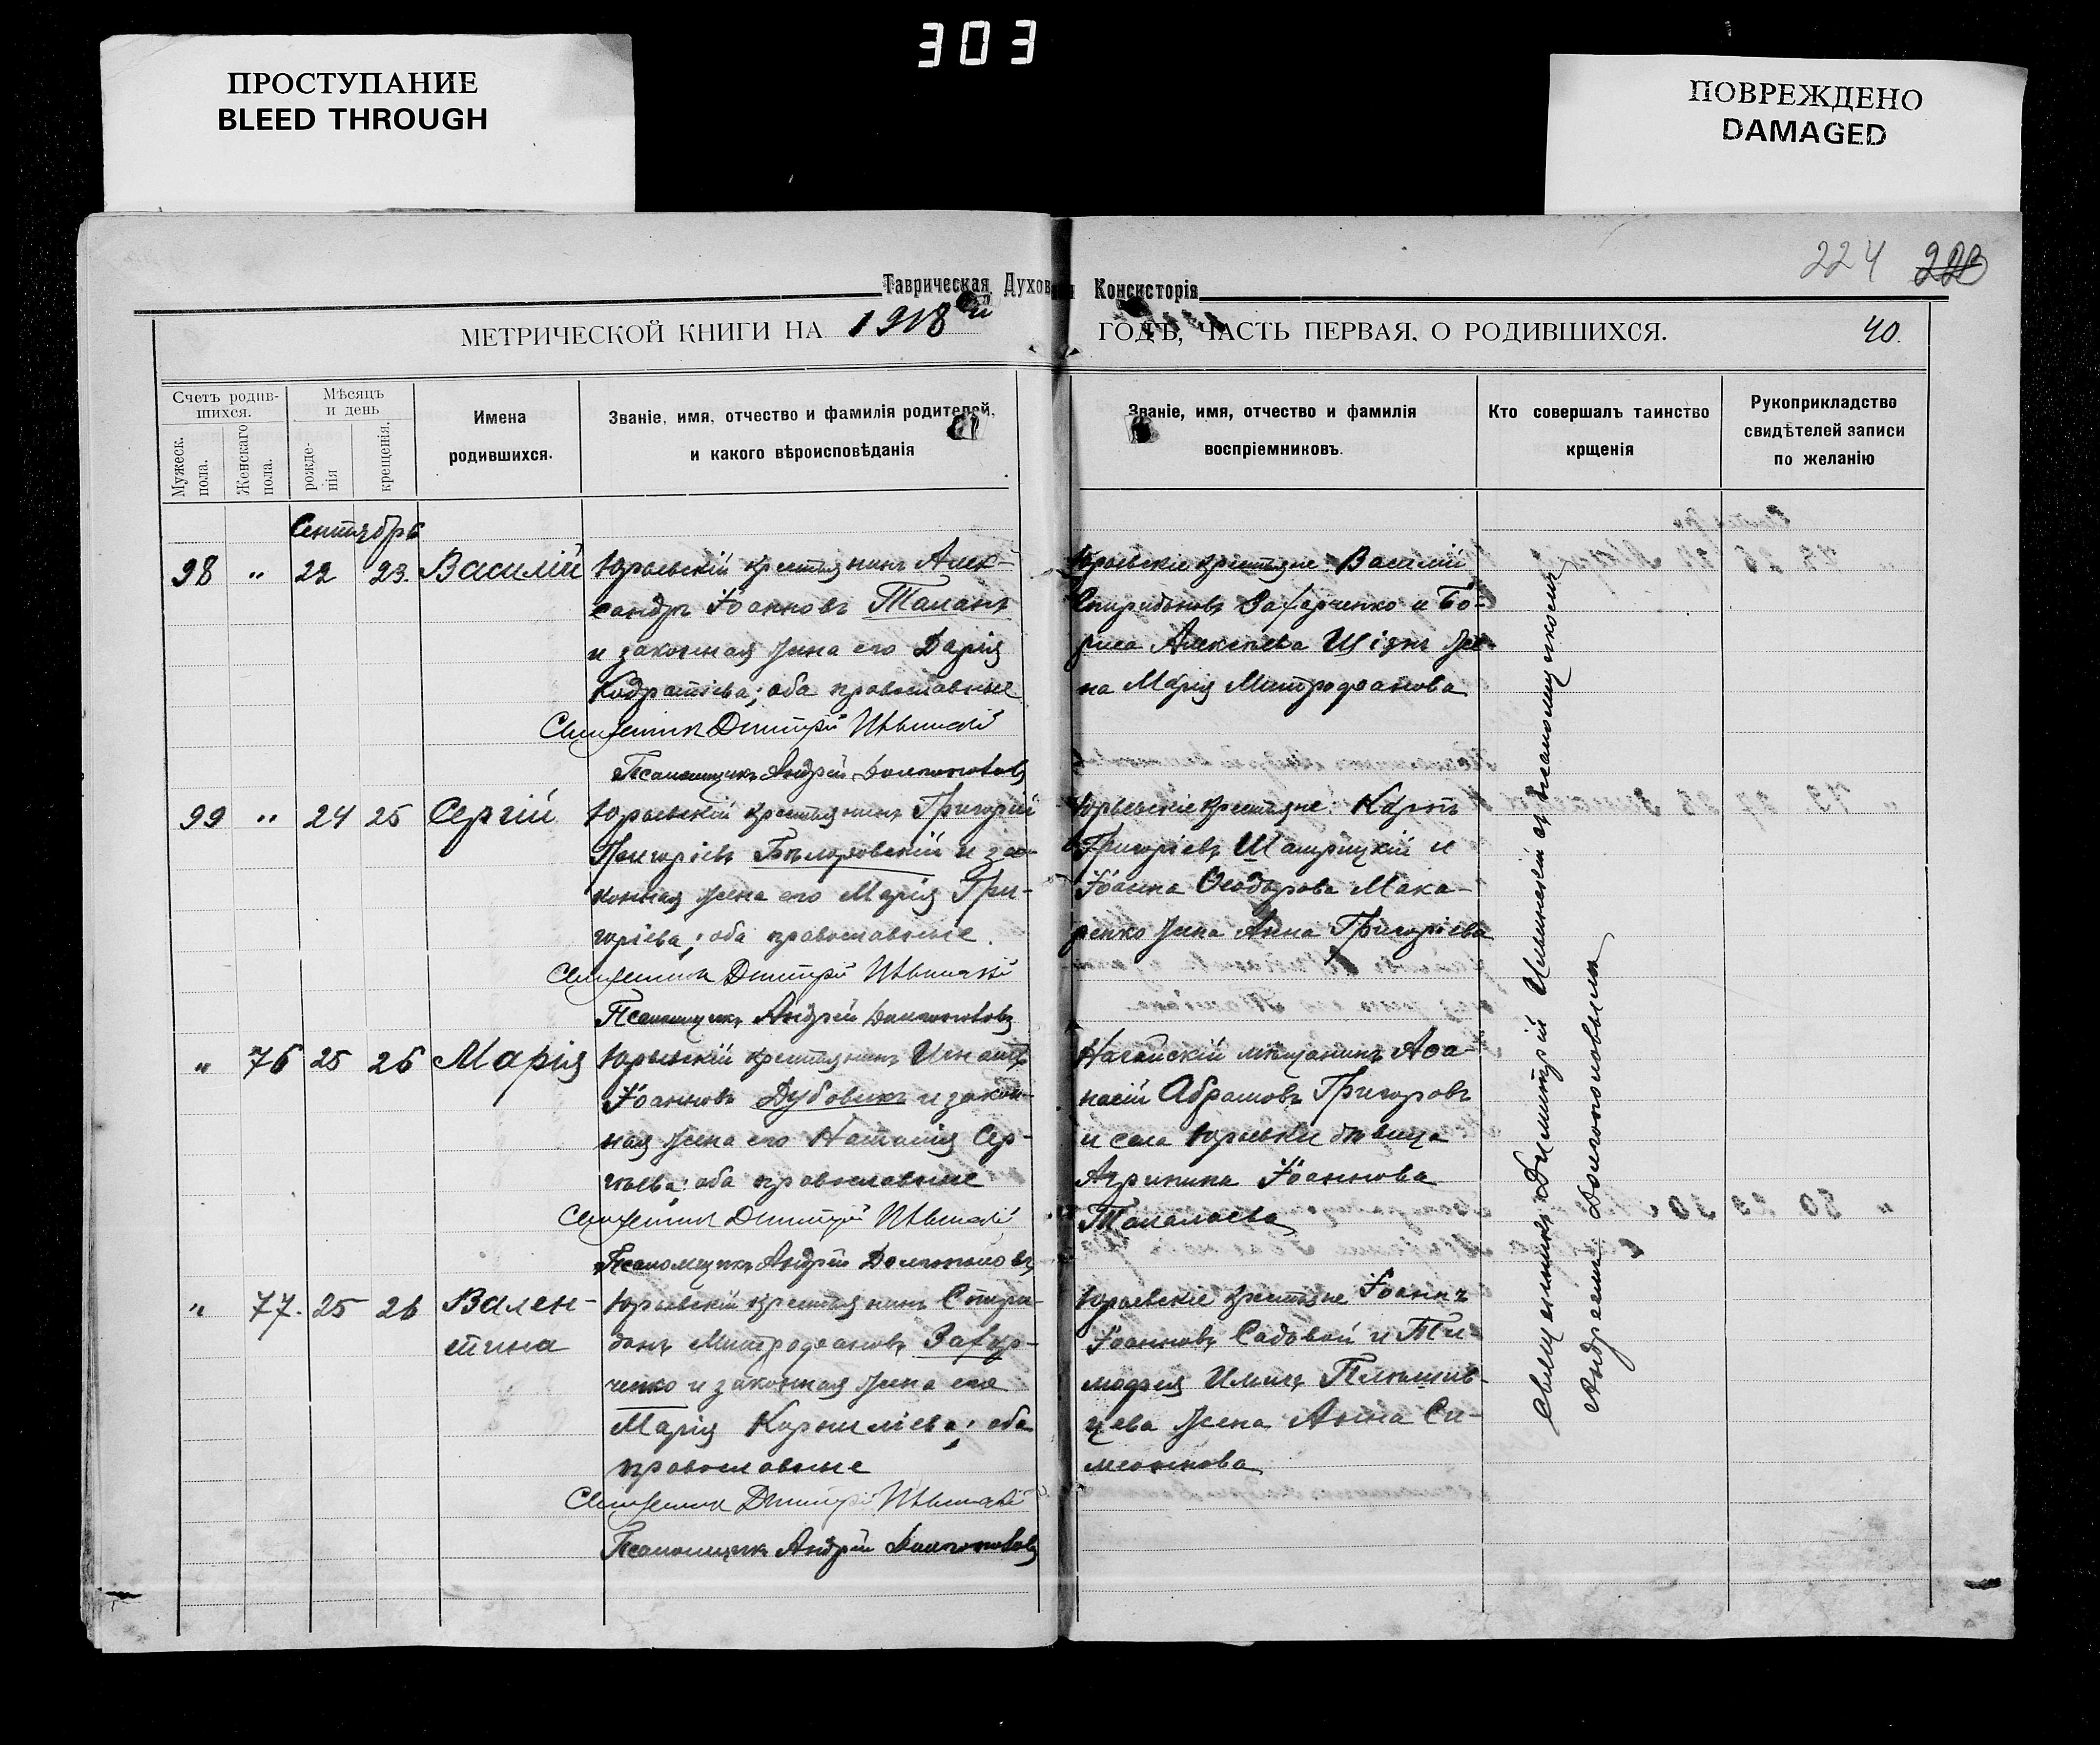 303
ПРОСТУПАНИЕ
BLEED THROUGH
ПОВРЕЖДЕНО
DAMAGED
224 223
Таврическая Духовная Консисторія
МЕТРИЧЕСКОЙ КНИГИ НА 1918 й ГОДЪ, ЧАСТЬ ПЕРВАЯ, О РОДИВШИХСЯ. 40.
Счетъ родив-
шихся.
Мужеск.
пола.
Женскаго
пола.
Мѣсяцъ
и день
рожде-
нія
крещенія.
Имена
родившихся.
Званіе, имя, отчество и фамилія родителей,
и какого вѣроисповѣданія
Званіе, имя, отчество и фамилія
воспріемниковъ.
Кто совершалъ таинство
крщенія
Рукоприкладство
свидѣтелей записи
по желанію
Сентябрь
98 " 22 23. Василій
Юрьевскій крестьянинъ Алек-
сандръ Іоанновъ Таланъ
и законная жена его Дарія
Кодратіева; оба православные
Священник Дмитрій Ильинскій
Псаломщикъ Андрей Долгополовъ
Юрьевскіе крестьяне: Василій
Спиридоновъ Захарченко и Бо-
риса Алексѣева жe-
на Марія Митрофанова
99 " 24 25 Сергій
Юрьевскій крестьянинъ Григорій
Григоріевъ и за-
конная жена его Марія Гри-
горіева; оба православные.
Священник Дмитрій Ильинскій
Псаломщикъ Андрей Долгополовъ
Юрьевскіе крестьяне: Карпъ
Григоріевъ и
Іоанна Ѳеодорова Мака-
ренко жена Анна Григоріева
" 76 25 26 Марія
Юрьевскій крестьянинъ Игнатъ
Іоанновъ Дубовикъ и закон-
ная жена его Наталія Сер-
гіева; оба православные
Священник Дмитрій Ильинскій
Псаломщикъ Андрей Долгополовъ
Ногайскій мѣщанинъ Аѳа-
насій Абрамовъ Григоровъ
и села Юрьевки дѣвица
Агрипина Іоаннова
" 77. 25 26 Вален-
тина
Юрьевскій крестьянинъ Спири-
донъ Митрофановъ Захар-
ченко и законная жена его
Марія Корниліева; оба
православные
Священник Дмитрій Ильинскій
Псаломщикъ Андрей Долгополовъ
Юрьевскіе крестьяне Іоаннъ
Іоанновъ Садовой и Ти-
мофея
жена Анна Си-
меонова
Священникъ Димитрій Ильинскій съ псаломщикомъ
Андреемъ Долгополовымъ